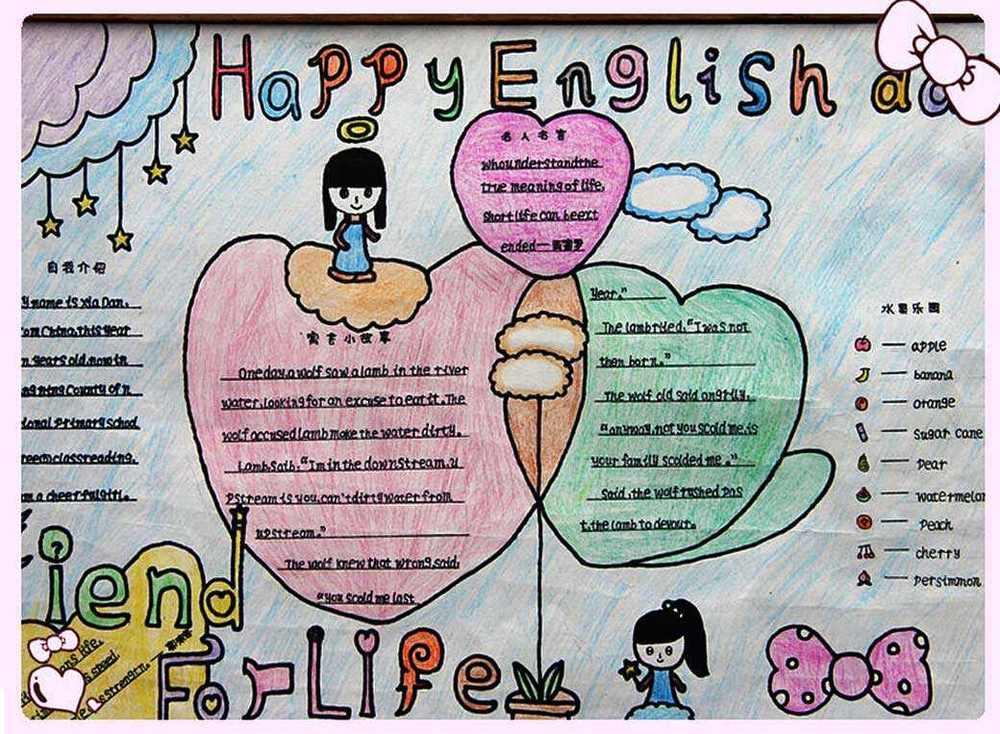 Happy English da
名人名言
who understand the
true meaning of life,
short life can be ext
ended—
自我介绍
y name is Xia Dan.
om China, this year
n years old, now in
ng ning County of n
ional Primary school
class reading.
m a cheerful girl.
寓言小故事
One day, a wolf saw a lamb in the river
water, looking for an excuse to eat it. The
wolf accused lamb make the water dirty.
Lamb saih, "I'm in the downstream, u
pstream is you, can't dirty water from
upstream."
The wolf knew that wrong, said,
"you scold me last
year."
The lamb ryled, "I was not
then born."
The wolf old said angrily,
"anyway, not you scold me, is
your family scolded me."
Said, the wolf rushed pas
t, the lamb to devour.
水果乐园
— apple
— banana
— orange
— sugar cane
— pear
— watermelon
— peach
— cherry
— persimmon
iend
For Life
ons life.
speed.
is strength.